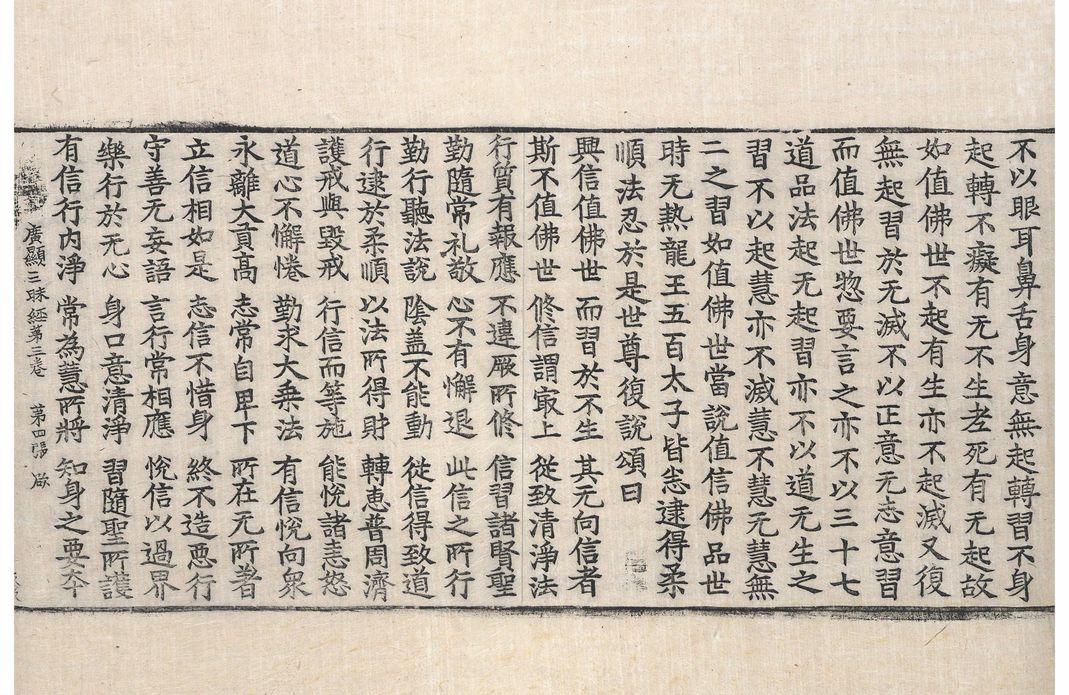 不以眼耳鼻舌身意無起轉習不身
起轉不癡有无不生老死有无起故
如值佛世不起有生亦不起滅又復
無起習於无滅不以正意无志意習
而值佛世惣要言之亦不以三十七
道品法起无起習亦不以道无生之
習不以起慧亦不滅慧不慧无慧無
二之習如值佛世當說值信佛品世
時无熱龍王五百太子皆悉逮得柔
順法忍於是世尊復說頌曰
興信值佛世 而習於不生 其无向信者
斯不值佛世 修信謂㝡上 從致清淨法
行質有報應 不違厥所修 信習諸賢聖
勤隨常礼敬 心不有懈退 此信之所行
勤行聽法說 陰盖不能動 從信得致道
行逮於柔順 以法所得財 轉惠普周濟
護戒與毀戒 行信而等施 能悅諸恚怒
道心不懈惓 勤求大乘法 有信悅向衆
永離大貢高 志常自卑下 所在无所著
立信相如是 志信不惜身 終不造惡行
守善无妄語 言行常相應 悅信以過界
樂行於无心 身口意清淨 習隨聖所護
有信行内淨 常為慧所將 知身之要本
廣顯三昧經第三卷 第四張